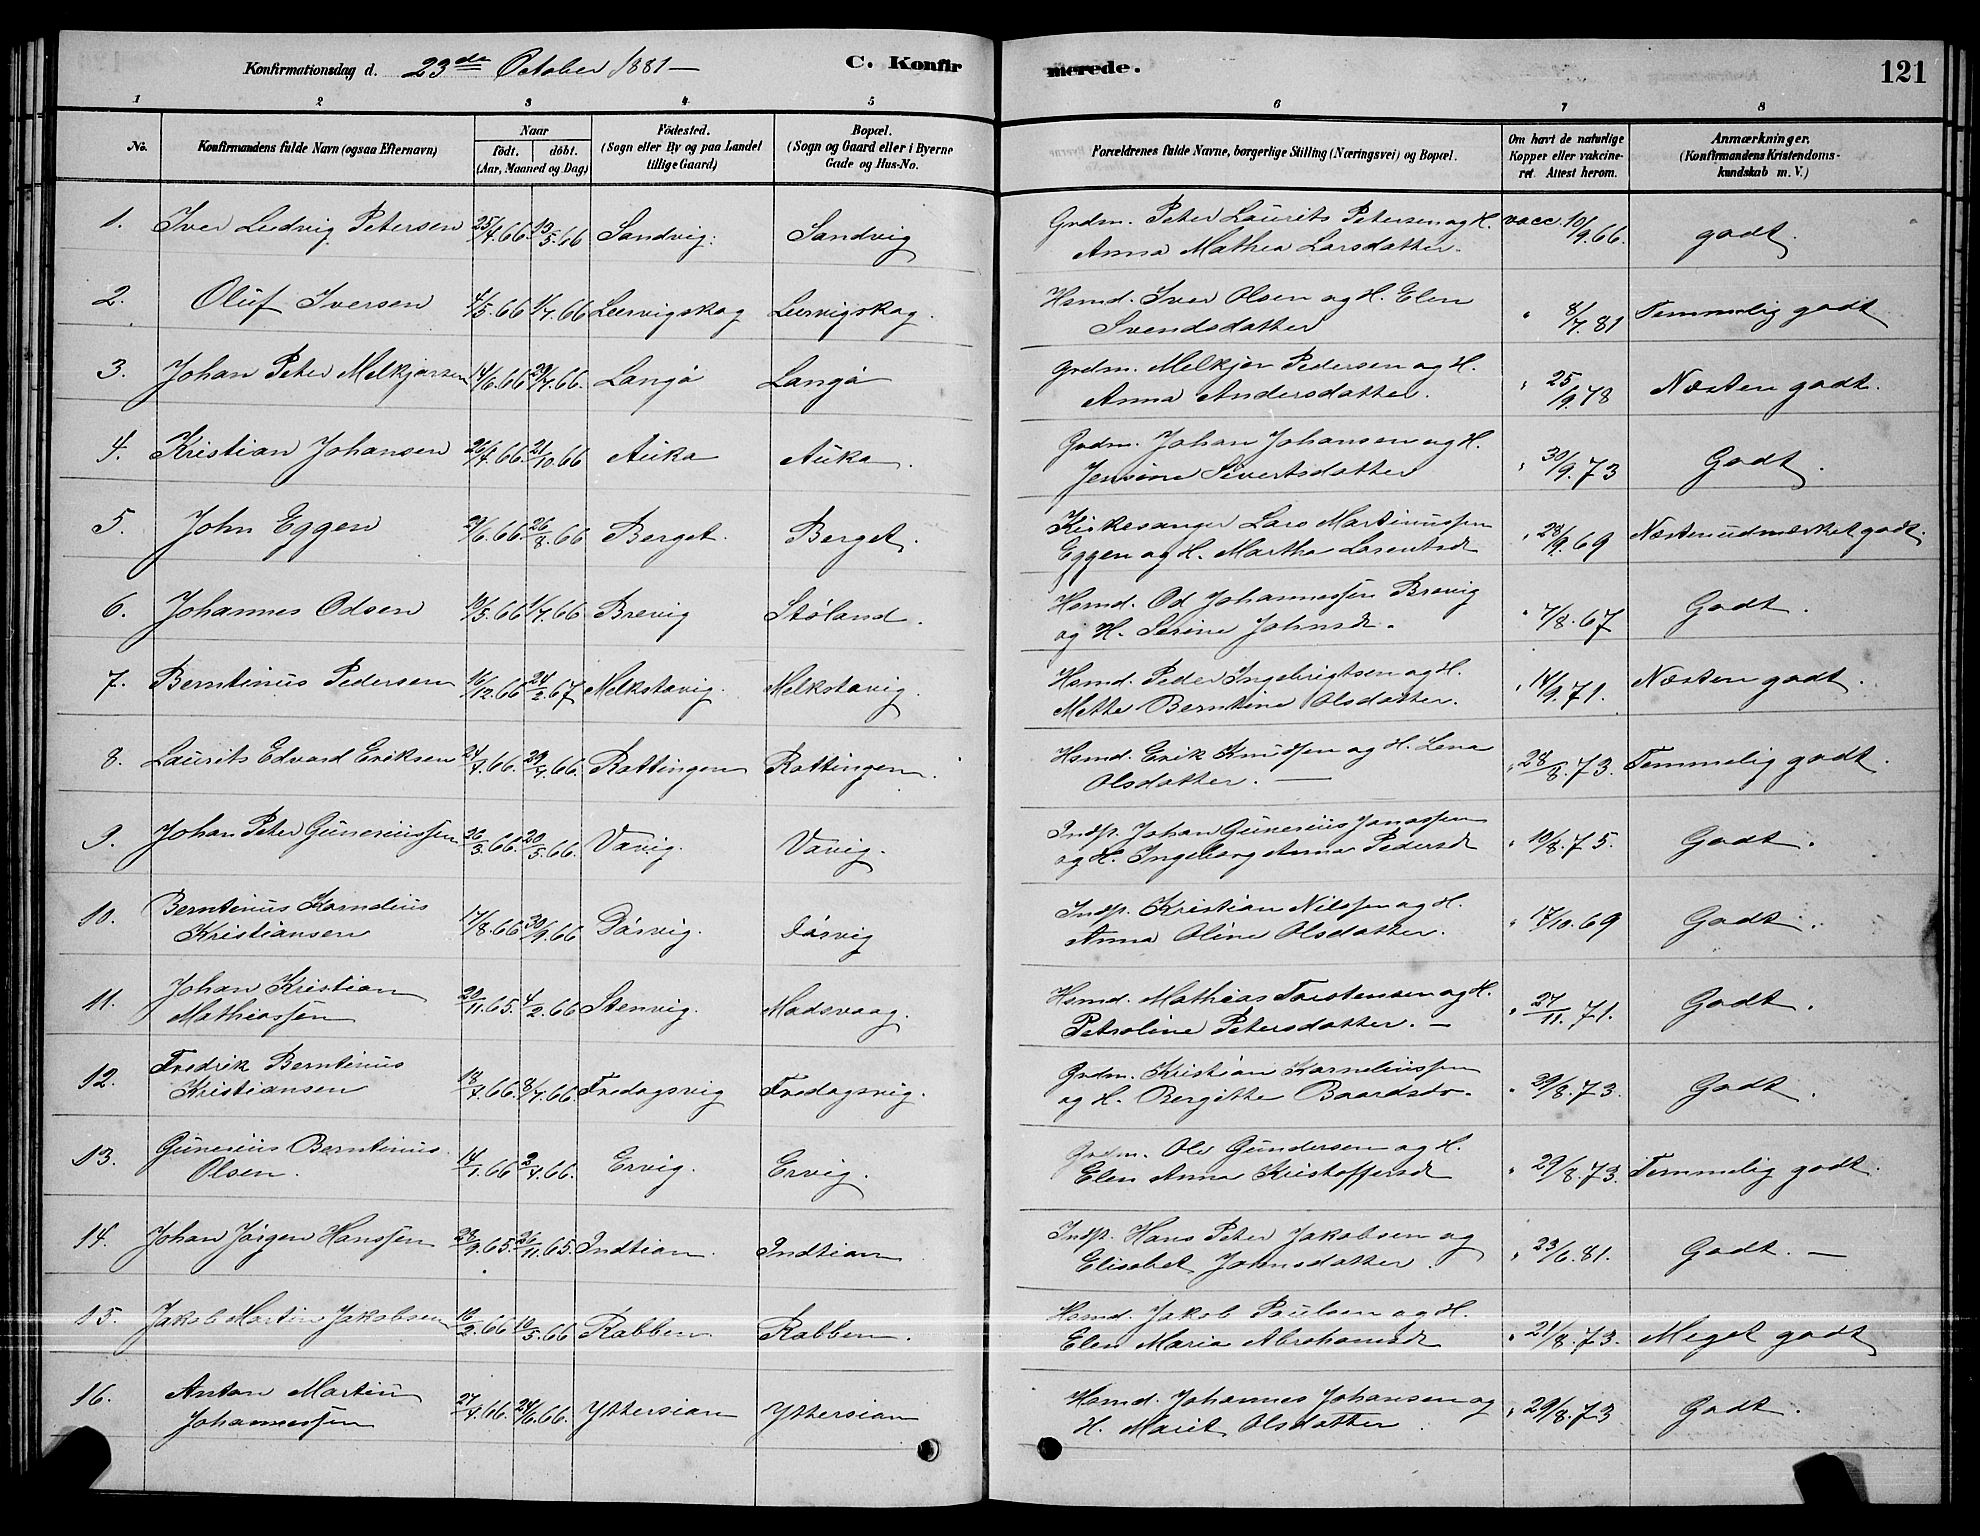 Konfirmationsdag d. 23de October 1881 — C. Konfirmerede. 121
1 2 3 4 5 6 7 8
No. Konfirmandens fulde Navn (ogsaa Efternavn) Naar födt. döbt. (Aar, Maaned og Dag) Födested. (Sogn eller By og paa Landet tillige Gaard) Bopæl. (Sogn og Gaard eller i Byerne Gade og Hus-No. Forældrenes fulde Navne, borgerlige Stilling (Næringsvei) og Bopæl. Om havt de naturlige Kopper eller vakcineret. Attest herom. Anmærkninger. (Konfirmandens Kristendomskundskab m. V.)
1. Iver Ludvig Petersen 25/4.66. 13/5.66 Sandvig. Sandvig Grdm. Peter Laurits Petersen og H. Anna Mathea Larsdatter. vacc. 10/9.66. godt.
2. Oluf Iversen 4/5.66 1/7.66 Leervigskag Leervigskag. Hsmd. Iver Olsen og H. Elen Svendsdatter " 8/7.81 Temmelig godt
3. Johan Peter Melkjorsen 14/6.66 29/7.66. Langö Langö Grdm. Melkjor Pedersen og H. Anna Andersdatter. " 25/9.78 Næsten godt.
4. Kristian Johansen 26/4.66. 21/10.66 Auka Auka. Grdm. Johan Johansen og H. Jensine Sivertsdatter " 30/9.73 Godt.
5. John Eggen 23/6.66. 26/8.66 Berget. Berget. Kirkesanger Lars Martinussen Eggen og H. Martha Lorentsdt " 28/9.69 Næsten udmærket godt.
6. Johannes Odsen 19/5.66 1/7.66 Brevig Stöland. Hsmd. Od Johannessen Brevig og H. Serine Johnsdt. " 7/8.67 Godt.
7. Berntinus Pedersen 16/12.66 24/2.67 Melkstavig. Melkstavig. Hsmd. Peder Ingebrigtsen og H. Mette Berntine Olsdatter. " 14/9.71. Næsten godt.
8. Laurits Edvard Eriksen 24/4.66. 29/7.66. Rottingen Rottingen. Hsmd. Erik Knudsen og H. Lena Olsdatter. — " 28/8.73. Temmelig godt.
9. Johan Peter Guneriussen 26/3.66. 20/5.66. Vavig. Vavig. Indp. Johan Gunerius Jonassen og H. Ingeborg Anna Pedersdt " 10/8.75. Godt.
10. Berntinus Kornelius Kristiansen 17/8.66 30/9.66 Dörvig. Dörvig Indp. Kristian Nilssen og H. Anna Oline Olsdatter. " 17/10.69 Godt.
11. Johan Kristian Mathiassen 20/11.65. 4/2.66 Stenvig. Madsvaag. Hsmd. Mathias Torstensen og H. Petroline Petersdatter. — " 27/11.71. Godt.
12. Fredrik Berntinus Kristiansen 18/4.66. 8/7.66. Fredagsvig Fredagsvig. Grdm. Kristian Korneliussen og H. Bergitte Baardsd. " 29/8.73. Godt.
13. Gunerius Berntinus Olsen. 14/1.66 2/4.66. Ervig. Ervig. Grdm. Ole Gundersen og H. Elen Anna Kristoffersdt " 29/8.73. Temmelig godt.
14. Johan Jörgen Hanssen 28/9.65. 26/11.65. Indtian. Indtian Indp. Hans Peter Jakobsen og Elisabet Johnsdatter. " 23/6.81. Godt. —
15. Jakob Martin Jakobsen 16/2.66 10/5.66 Rabben Rabben. Hsmd. Jakob Paulsen og H. Elen Maria Abrahamsdt " 21/8.73. Meget godt
16. Anton Martin Johannessen 27/4.66. 24/6.66. Yttersian Yttersian Hsmd. Johannes Johansen og H. Marit Olsdatter " 29/8.73 Godt.